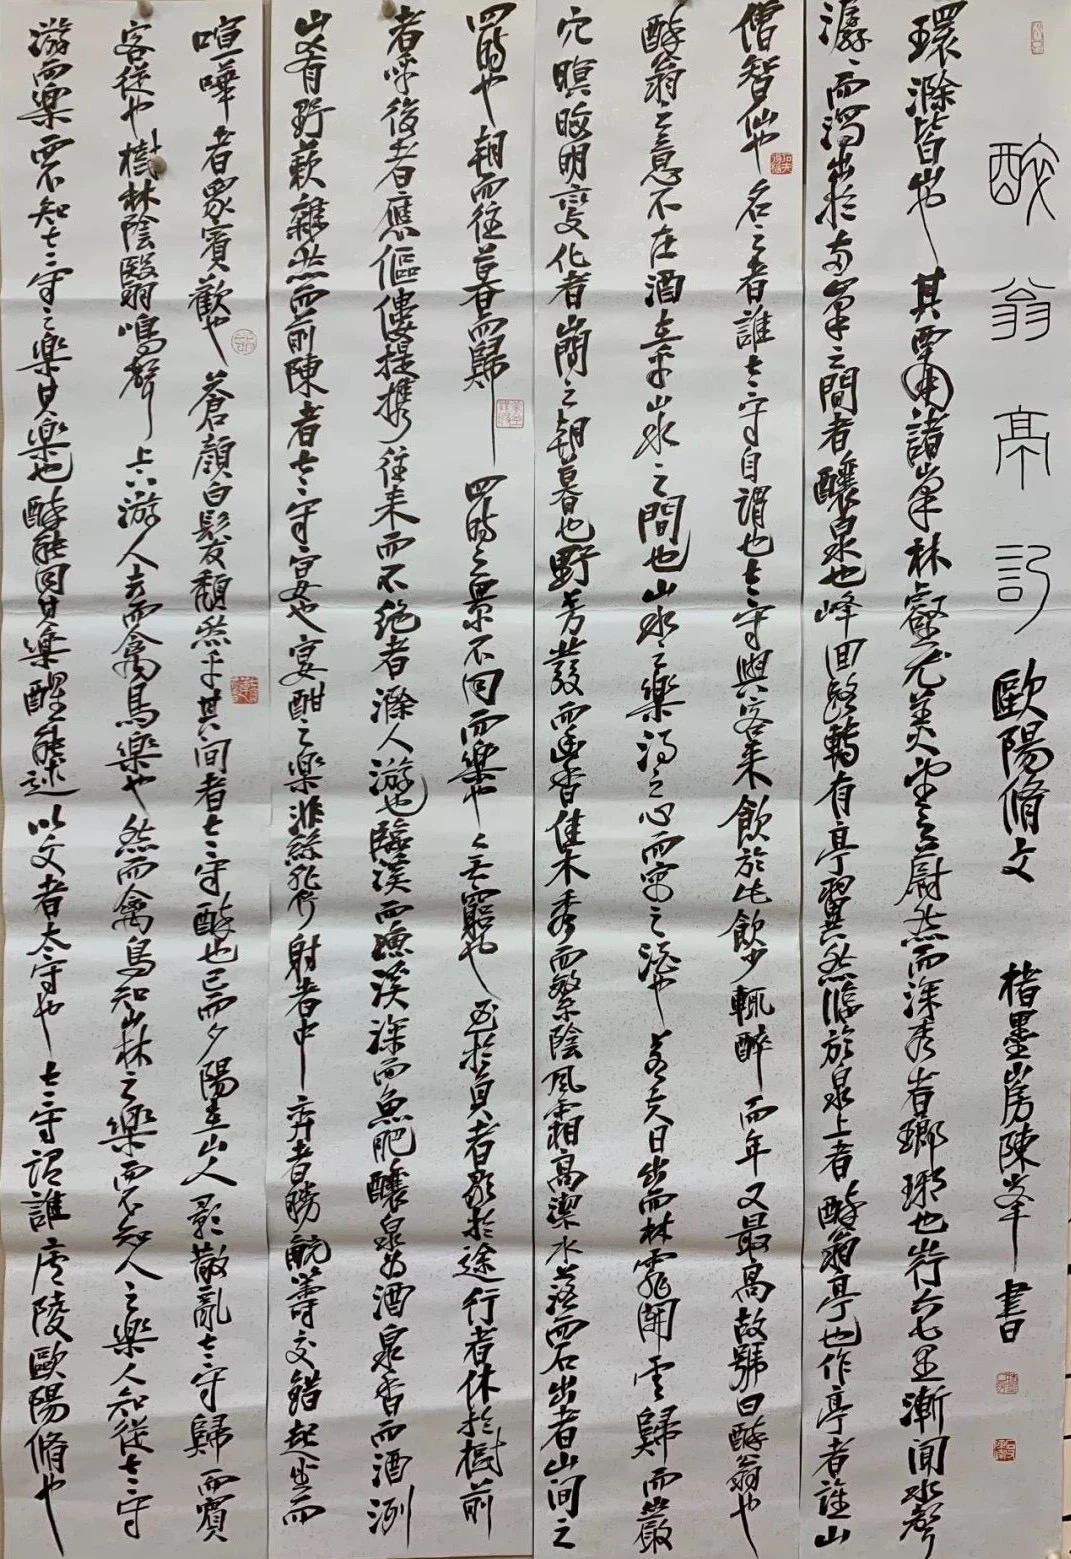 醉翁亭記 歐陽脩文 楮墨山房陳峯書
環滁皆山也其西南諸峯林壑尤美望之蔚然而深秀者瑯琊也山行六七里漸聞水聲
潺潺而瀉出於兩峯之間者釀泉也峰回路轉有亭翼然臨於泉上者醉翁亭也作亭者誰山
僧智仙也名之者誰太守自謂也太守與客來飲於此飲少輒醉而年又最高故號曰醉翁也
醉翁之意不在酒在乎山水之間也山水之樂得之心而寓之酒也若夫日出而林霏開雲歸而巖
穴暝晦明變化者山間之朝暮也野芳發而幽香佳木秀而繁陰風霜高潔水落而石出者山間之
四時也朝而往暮而歸四時之景不同而樂也亦無窮也至於負者歌於途行者休於樹前
者呼後者應傴僂提攜往來而不絕者滁人游也臨溪而漁溪深而魚肥釀泉為酒泉香而酒洌
山肴野蔌雜然而前陳者太守宴也宴酣之樂非絲非竹射者中弈者勝觥籌交錯起坐而
喧嘩者眾賓歡也蒼顏白髮頹然乎其間者太守醉也已而夕陽在山人影散亂太守歸而賓
客從也樹林陰翳鳴聲上下游人去而禽鳥樂也然而禽鳥知山林之樂而不知人之樂人知從太守
游而樂而不知太守之樂其樂也醉能同其樂醒能述以文者太守也太守謂誰廬陵歐陽脩也